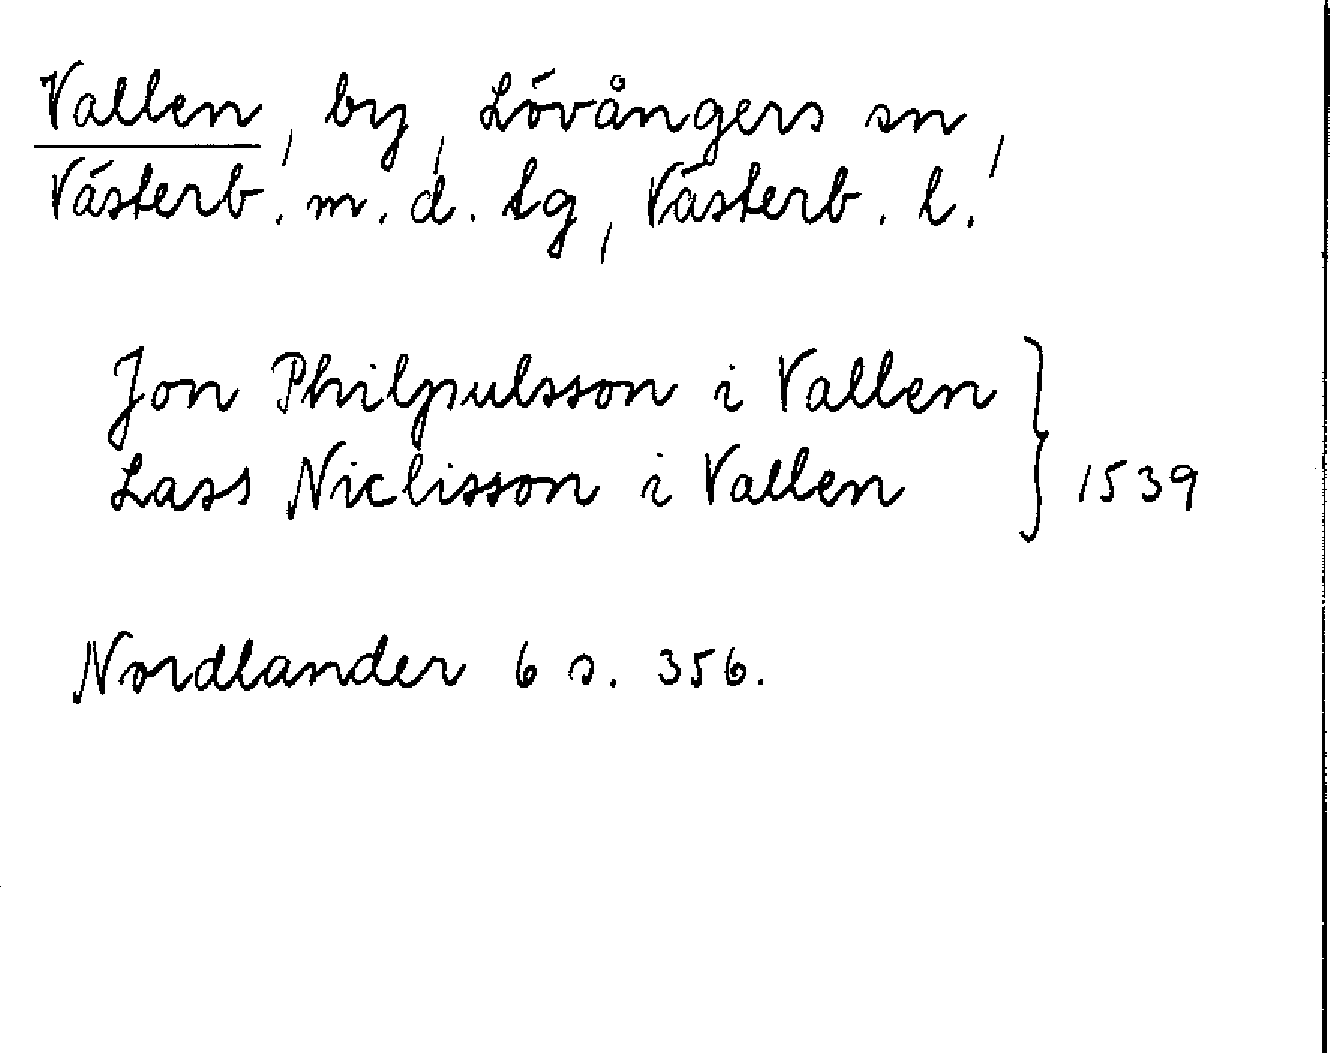 Vallen, by, Lövångers sn,
Västerb. m. d. tg, Västerb. l.
Jon Philpulsson i Vallen
Lass Niclisson i Vallen } 1539
Nordlander 6 s. 356.